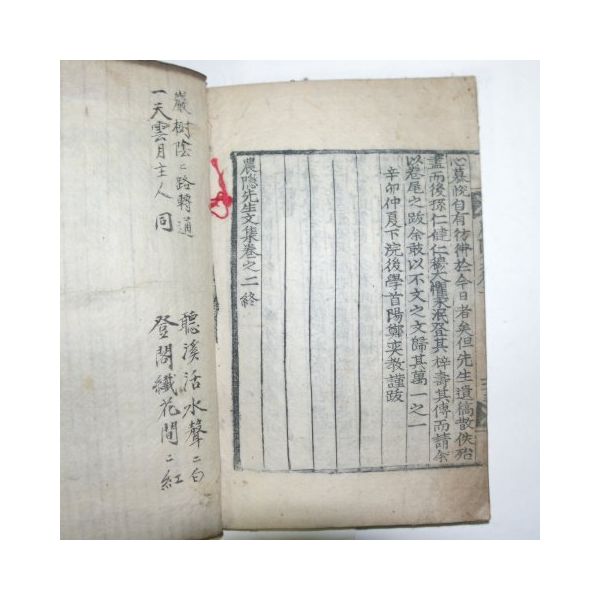 心慕院自有彷彿於今日者矣但先生遺稿散佚殆
盡而後孫仁健仁穆大懼泯登其梓壽其傳而請余
以卷尾之跋余敢以不文之文歸其萬一之一
辛卯仲夏下院後學首陽鄭奕敎謹跋
農隱先生文集卷之二終
聽溪活水聲二白
登閣纖花間二紅
巖樹陰二路轉通
一天雲月主人同